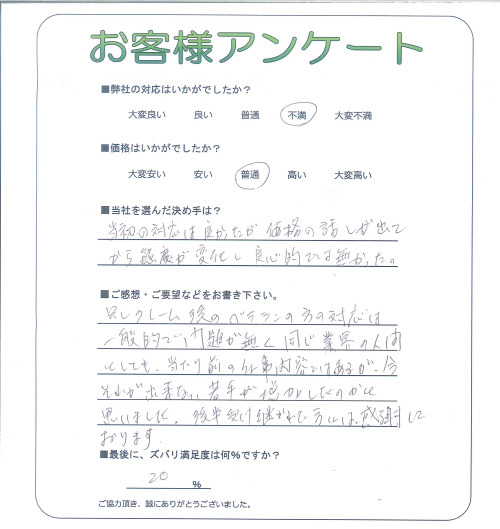 お客様アンケート
■弊社の対応はいかがでしたか？
大変良い 良い 普通 不満 大変不満
■価格はいかがでしたか？
大変安い 安い 普通 高い 大変高い
■当社を選んだ決め手は？
当初の対応は良かったが価格の話しが出て
から態度が変化し良心的では無かった。
■ご感想・ご要望などをお書き下さい。
クレーム後のベテランの方の対応は
一般的で問題が無く同じ業界の人間
としても、当たり前の仕事内容ではあるが、今
それが出来ない若手が増加したのかと
思いました。後半受け継がれた方には、感謝して
おります
■最後に、ズバリ満足度は何%ですか？
20 %
ご協力頂き、誠にありがとうございました。